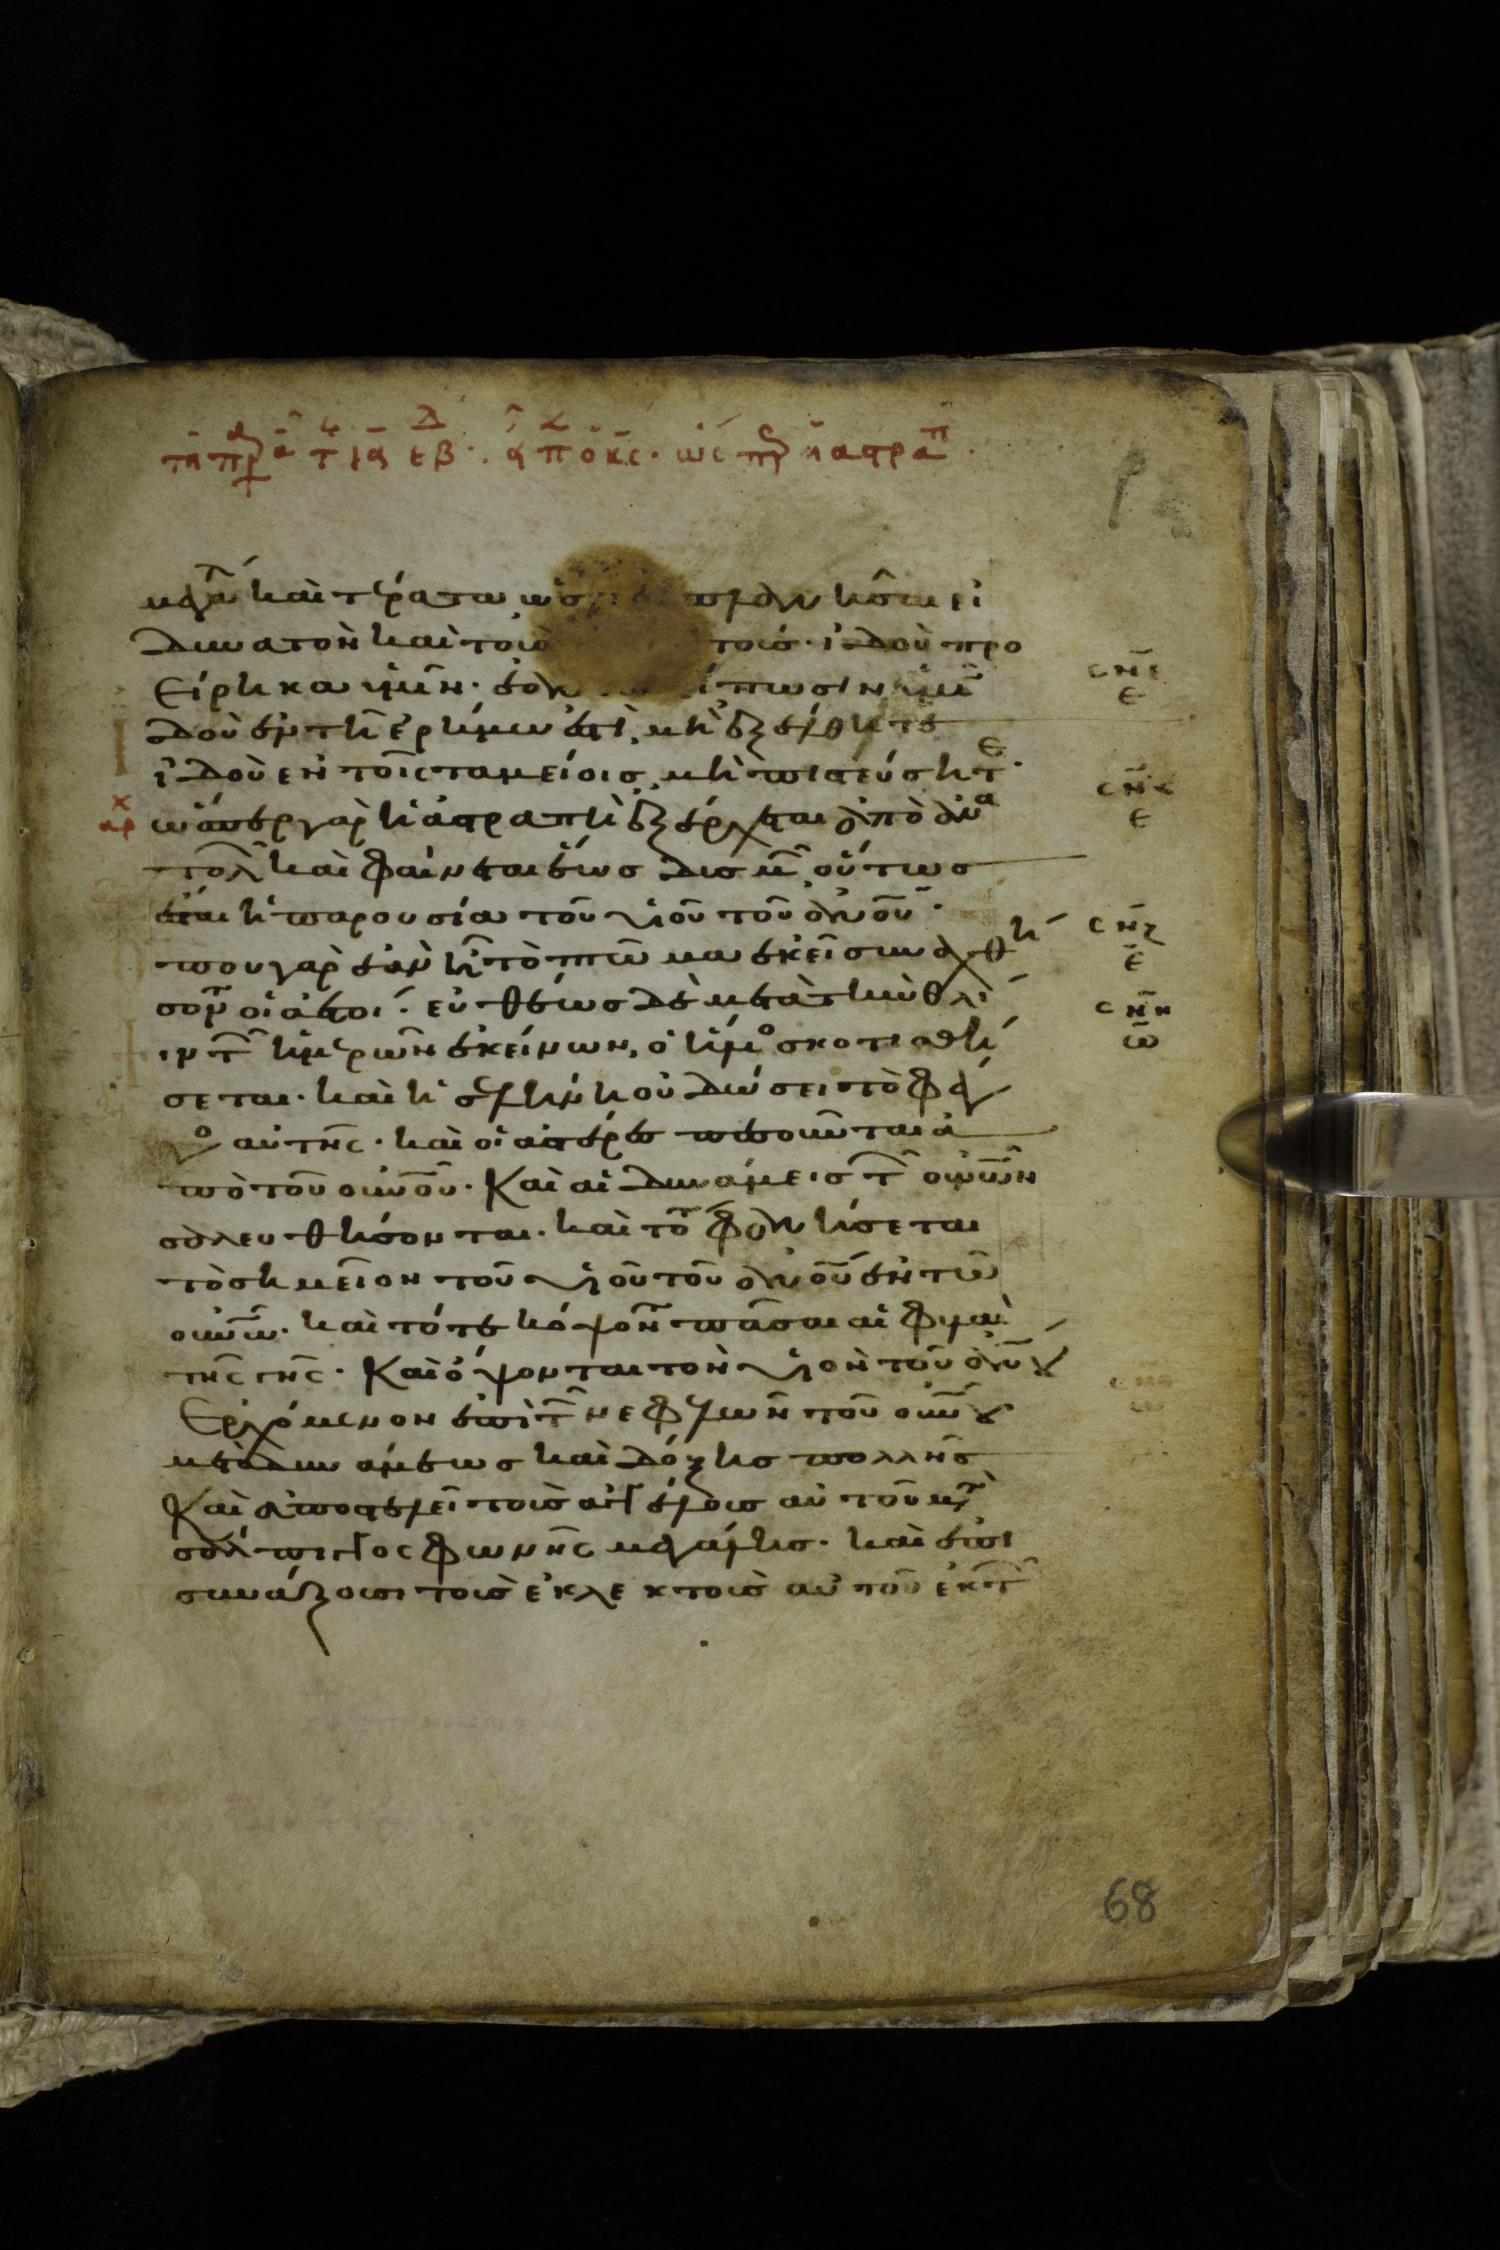 τῆ παρα τ ια εβ. ειπ ο κς. ὡσπερ ἡ αστραπ
μεγάλα καὶ τέρατα ὥστε πλανῆσαι εἰ
δυνατὸν καὶ τοὺς τούς· ἰδοὺ προ
είρηκα ὑμῖν· ἐὰν εἴπωσιν ὑμῖν
ἰδοὺ ἐν τῆ ἐρήμω ἐστὶ, μὴ ἐξέλθητε
ἰδοὺ ἐν τοῖς ταμείοις, μὴ πιστεύσητε·
αρχ ὥσπερ γὰρ ἡ ἀστραπὴ ἐξέρχεται ἀπὸ ἀνα
τολῶν καὶ φαίνεται ἕως δυσμῶν, οὕτως
ἔσται ἡ παρουσία τοῦ υἱοῦ τοῦ ἀνου·
ὅπου γὰρ ἐὰν ἦ τὸ πτῶμα ἐκεῖ συναχθή
σονται οἱ ἀετοί· εὐθέως δὲ μετὰ τὴν θλί
ψιν τῶν ἡμερῶν ἐκείνων, ὁ ἥλιος σκοτισθή
σεται· καὶ ἡ σελήνη οὐ δώσει τὸ φέγ
γος αὐτῆς· καὶ οἱ ἀστέρες πεσοῦνται ἀ
πὸ τοῦ οὐνοῦ· Καὶ αἱ δυνάμεις τῶν οὐνῶν
σαλευθήσονται· καὶ τότε φανήσεται
τὸ σημεῖον τοῦ υἱοῦ τοῦ ἀνοῦ ἐν τῶ
οὐνῶ· καὶ τότε κόψονται πᾶσαι αἱ φυλαὶ
τῆς γῆς· Καὶ ὄψονται τὸν υἱὸν τοῦ ἀνου
Ἐρχόμενον ἐπὶ τῶν νεφελῶν τοῦ οὐνου
μετὰ δυνάμεως καὶ δόξης πολλῆς
Καὶ ἀποστελεῖ τοὺς ἀγγέλους αὐτοῦ μετὰ
σάλπιγγος φωνῆς μεγάλης· καὶ ἐπι
συνάξουσι τοὺς ἐκλεκτοὺς αὐτοῦ ἐκ τῶν
σνε
ε
σνς
ε
σνζ
ε
σνη
ω
68